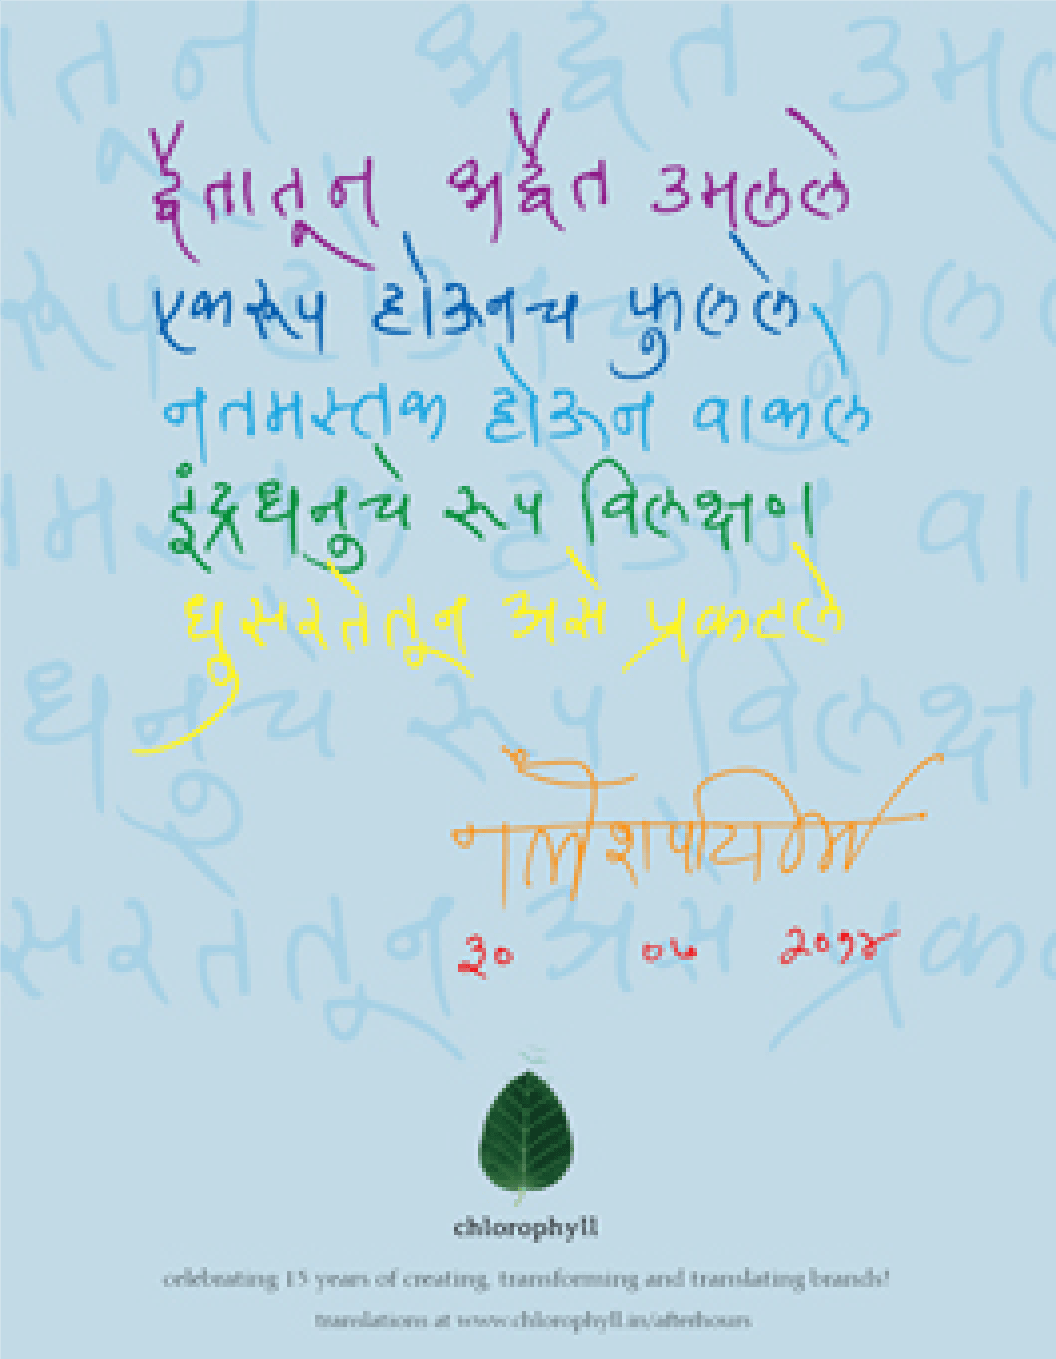 द्वैतातून अद्वैत उमलले
एकरूप होऊनच फुलले
नतमस्तक होऊन वाकले
इंद्रधनुचे रूप विलक्षण
धुसरतेतून असे प्रकटले
३० ०५ २०१४
chlorophyll
celebrating 15 years of creating, transforming and translating brands!
translations at www.chlorophyll.in/afterhours